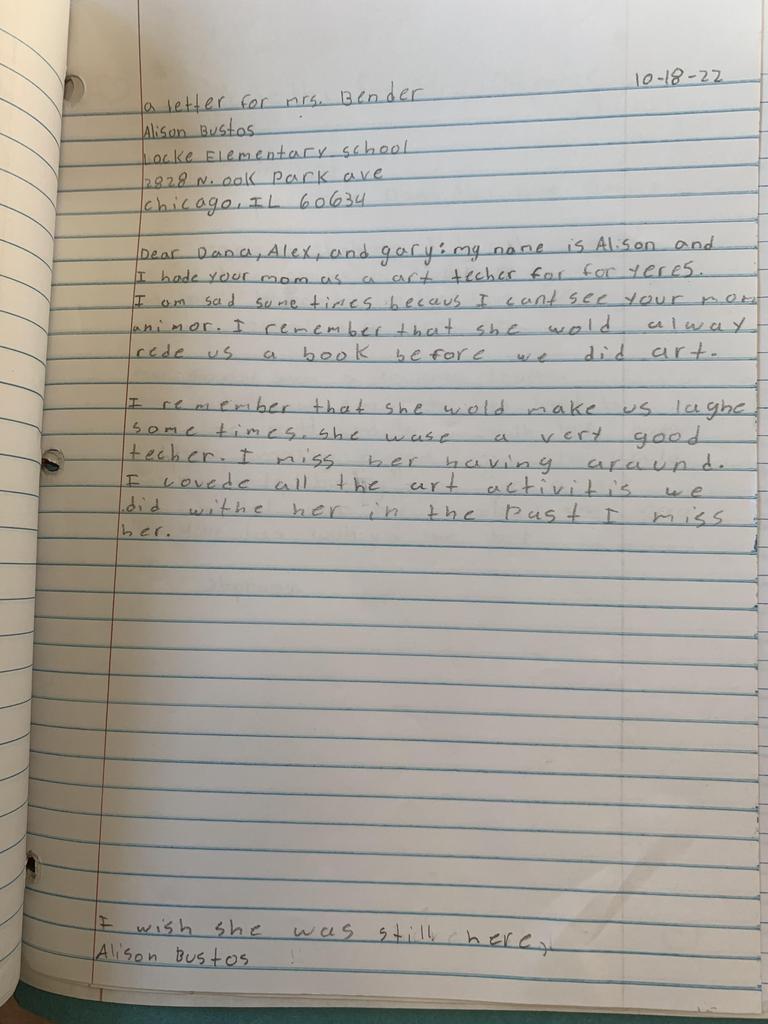 10-18-22
a letter for mrs. Bender
Alison Bustos
Locke Elementary school
2828 N. ook Park ave
chicago, IL 60634
Dear Dana, Alex, and gary: my name is Alison and
I hade your mom as a art techer for for yeres.
I am sad some times becaus I cant see your mom
ani mor. I remember that she wold alway
rede us a book before we did art.
I remember that she wold make us laghe
some times. she wase a very good
techer. I miss her having araund.
I lovede all the art activitis we
did withe her in the past I miss
her.
I wish she was still here,
Alison Bustos